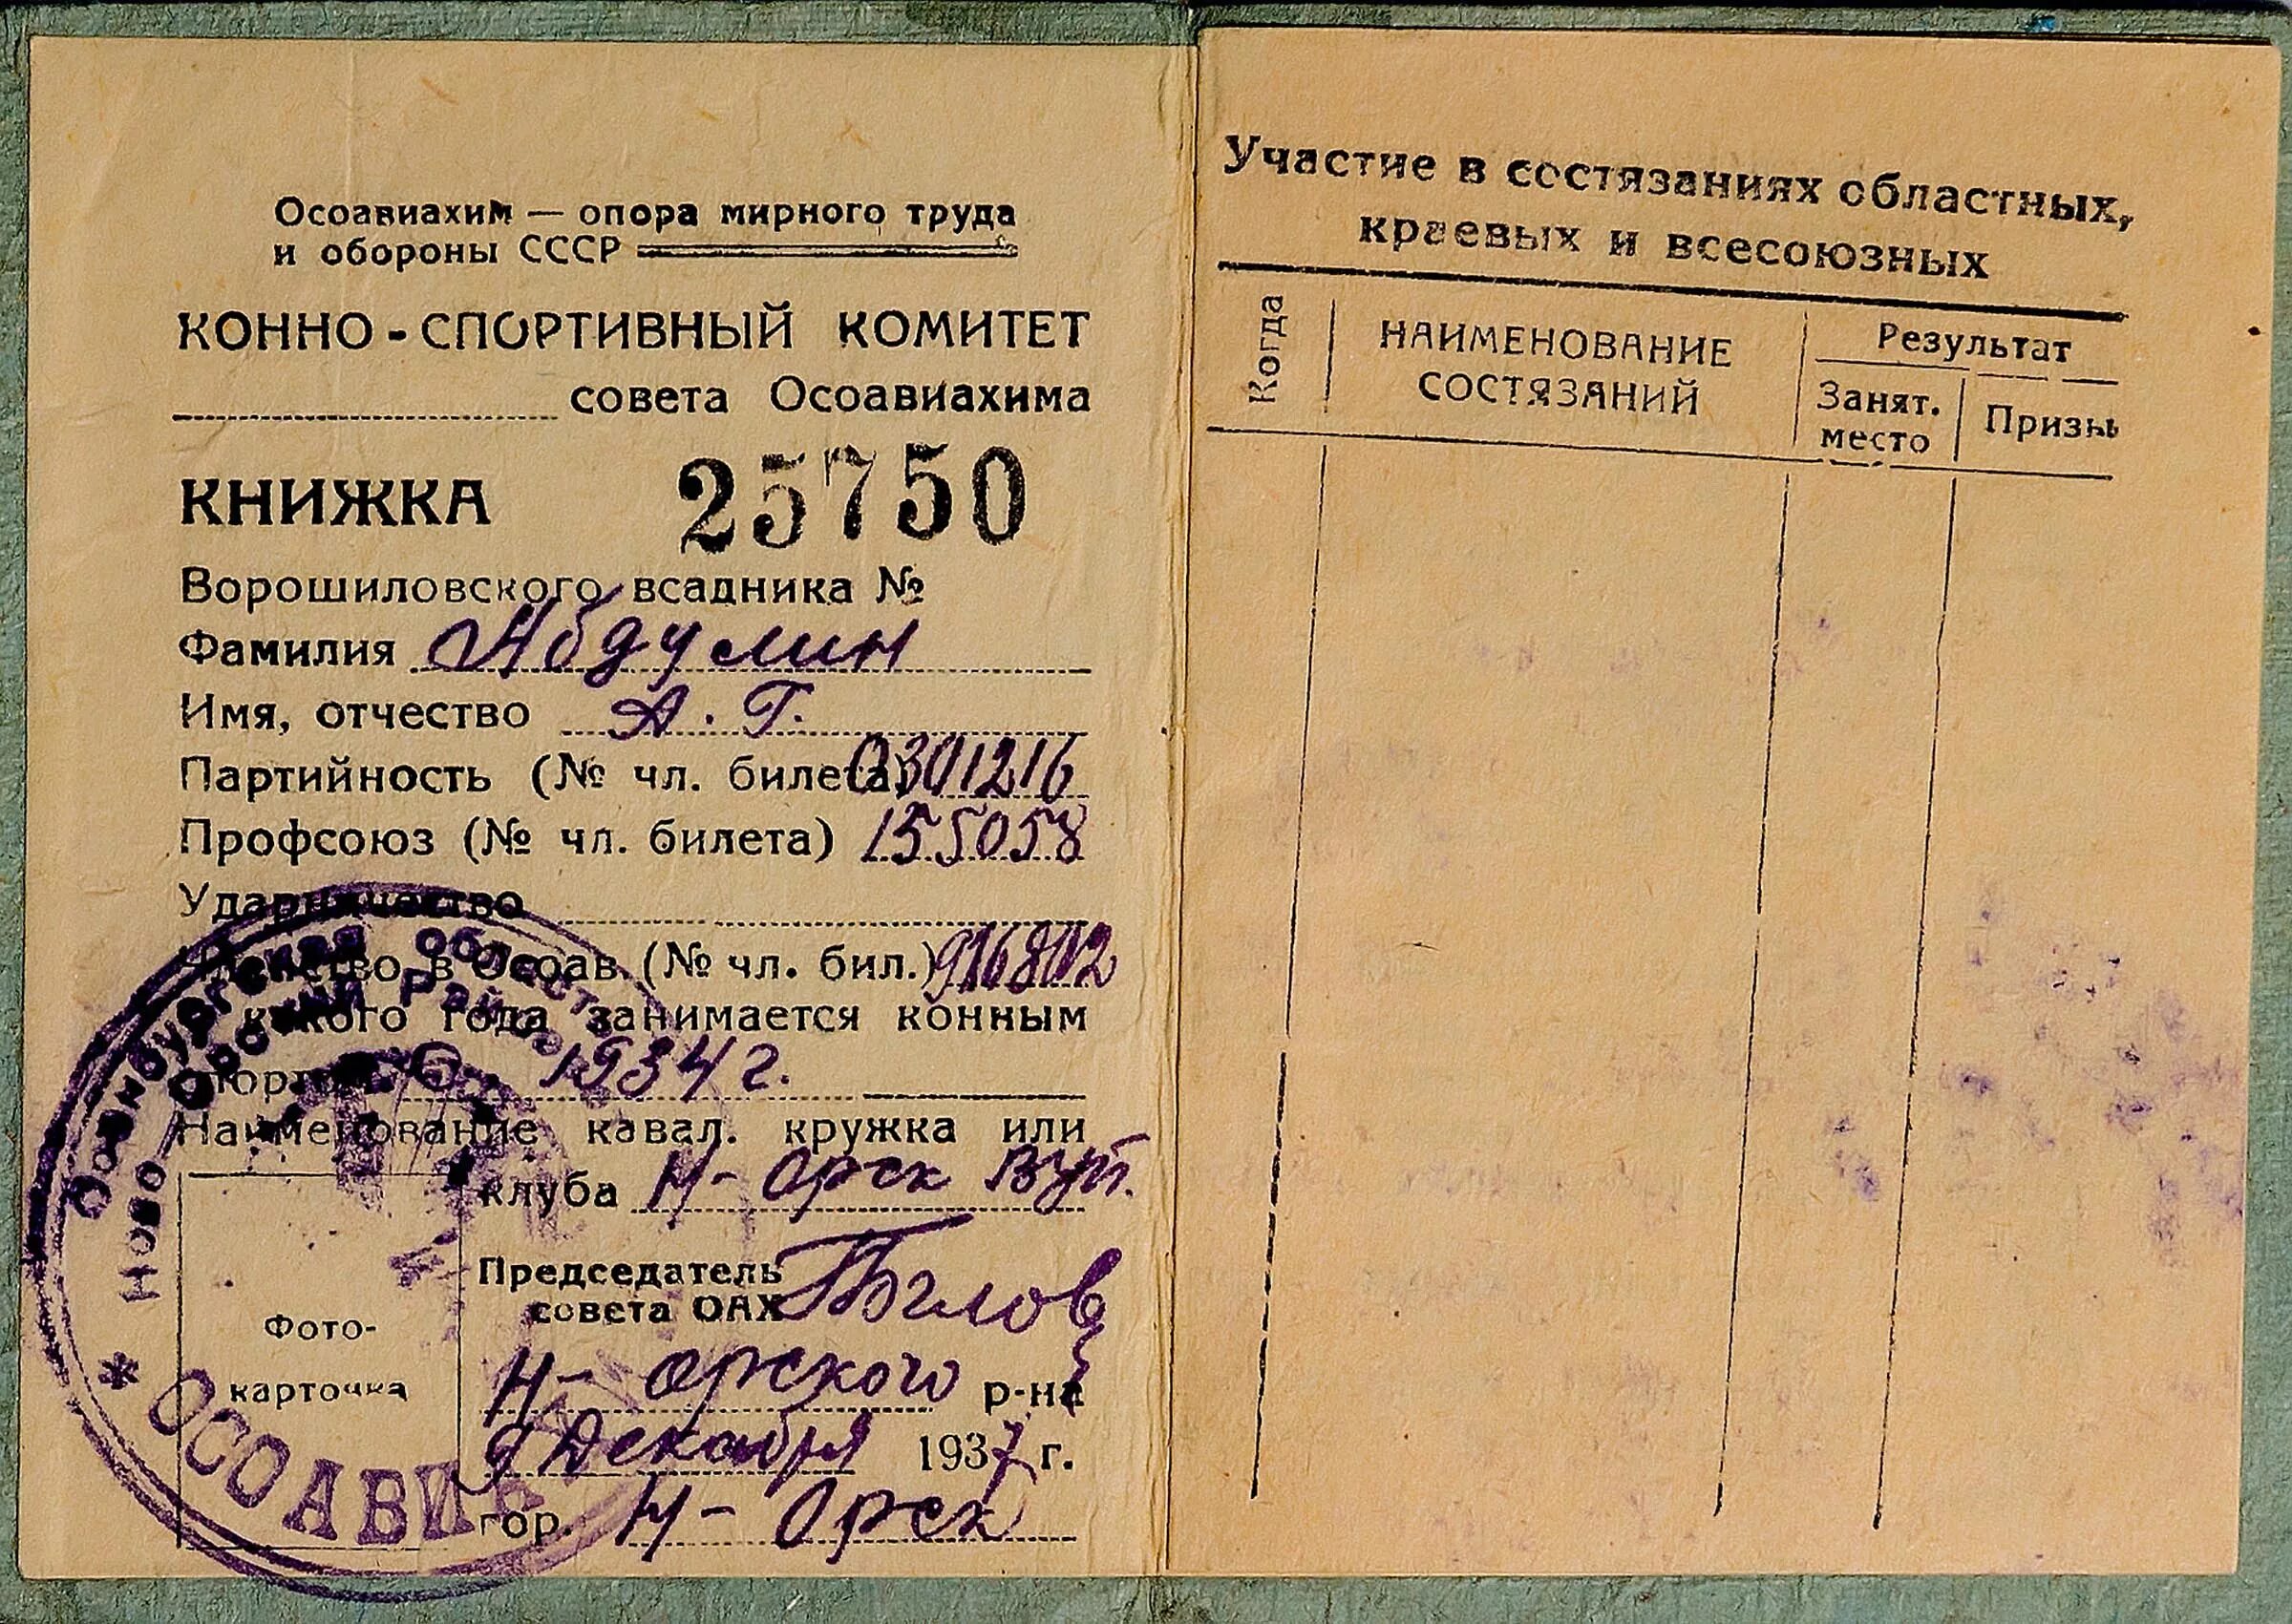 Осоавиахим — опора мирного труда
и обороны СССР
КОННО-СПОРТИВНЫЙ КОМИТЕТ
совета Осоавиахима
КНИЖКА 25750
Ворошиловского всадника №
Фамилия Абдулин
Имя, отчество А. Г.
Партийность (№ чл. билета) 0301216
Профсоюз (№ чл. билета) 155058
Ударничество
Членство в Осоав. (№ чл. бил.)
С какого года занимается конным
спортом С 1934 г.
Наименование кавал. кружка или
клуба Н-Орск
Фото-
карточка
Председатель
совета ОАХ
Н-Орского р-на
9 Декабря 1937 г.
гор. Н-Орск
Оренбургская область
Ново Орский Район
* ОСОАВИ
Участие в состязаниях областных,
краевых и всесоюзных
Когда
НАИМЕНОВАНИЕ
СОСТЯЗАНИЙ
Результат
Занят.
место
Призы